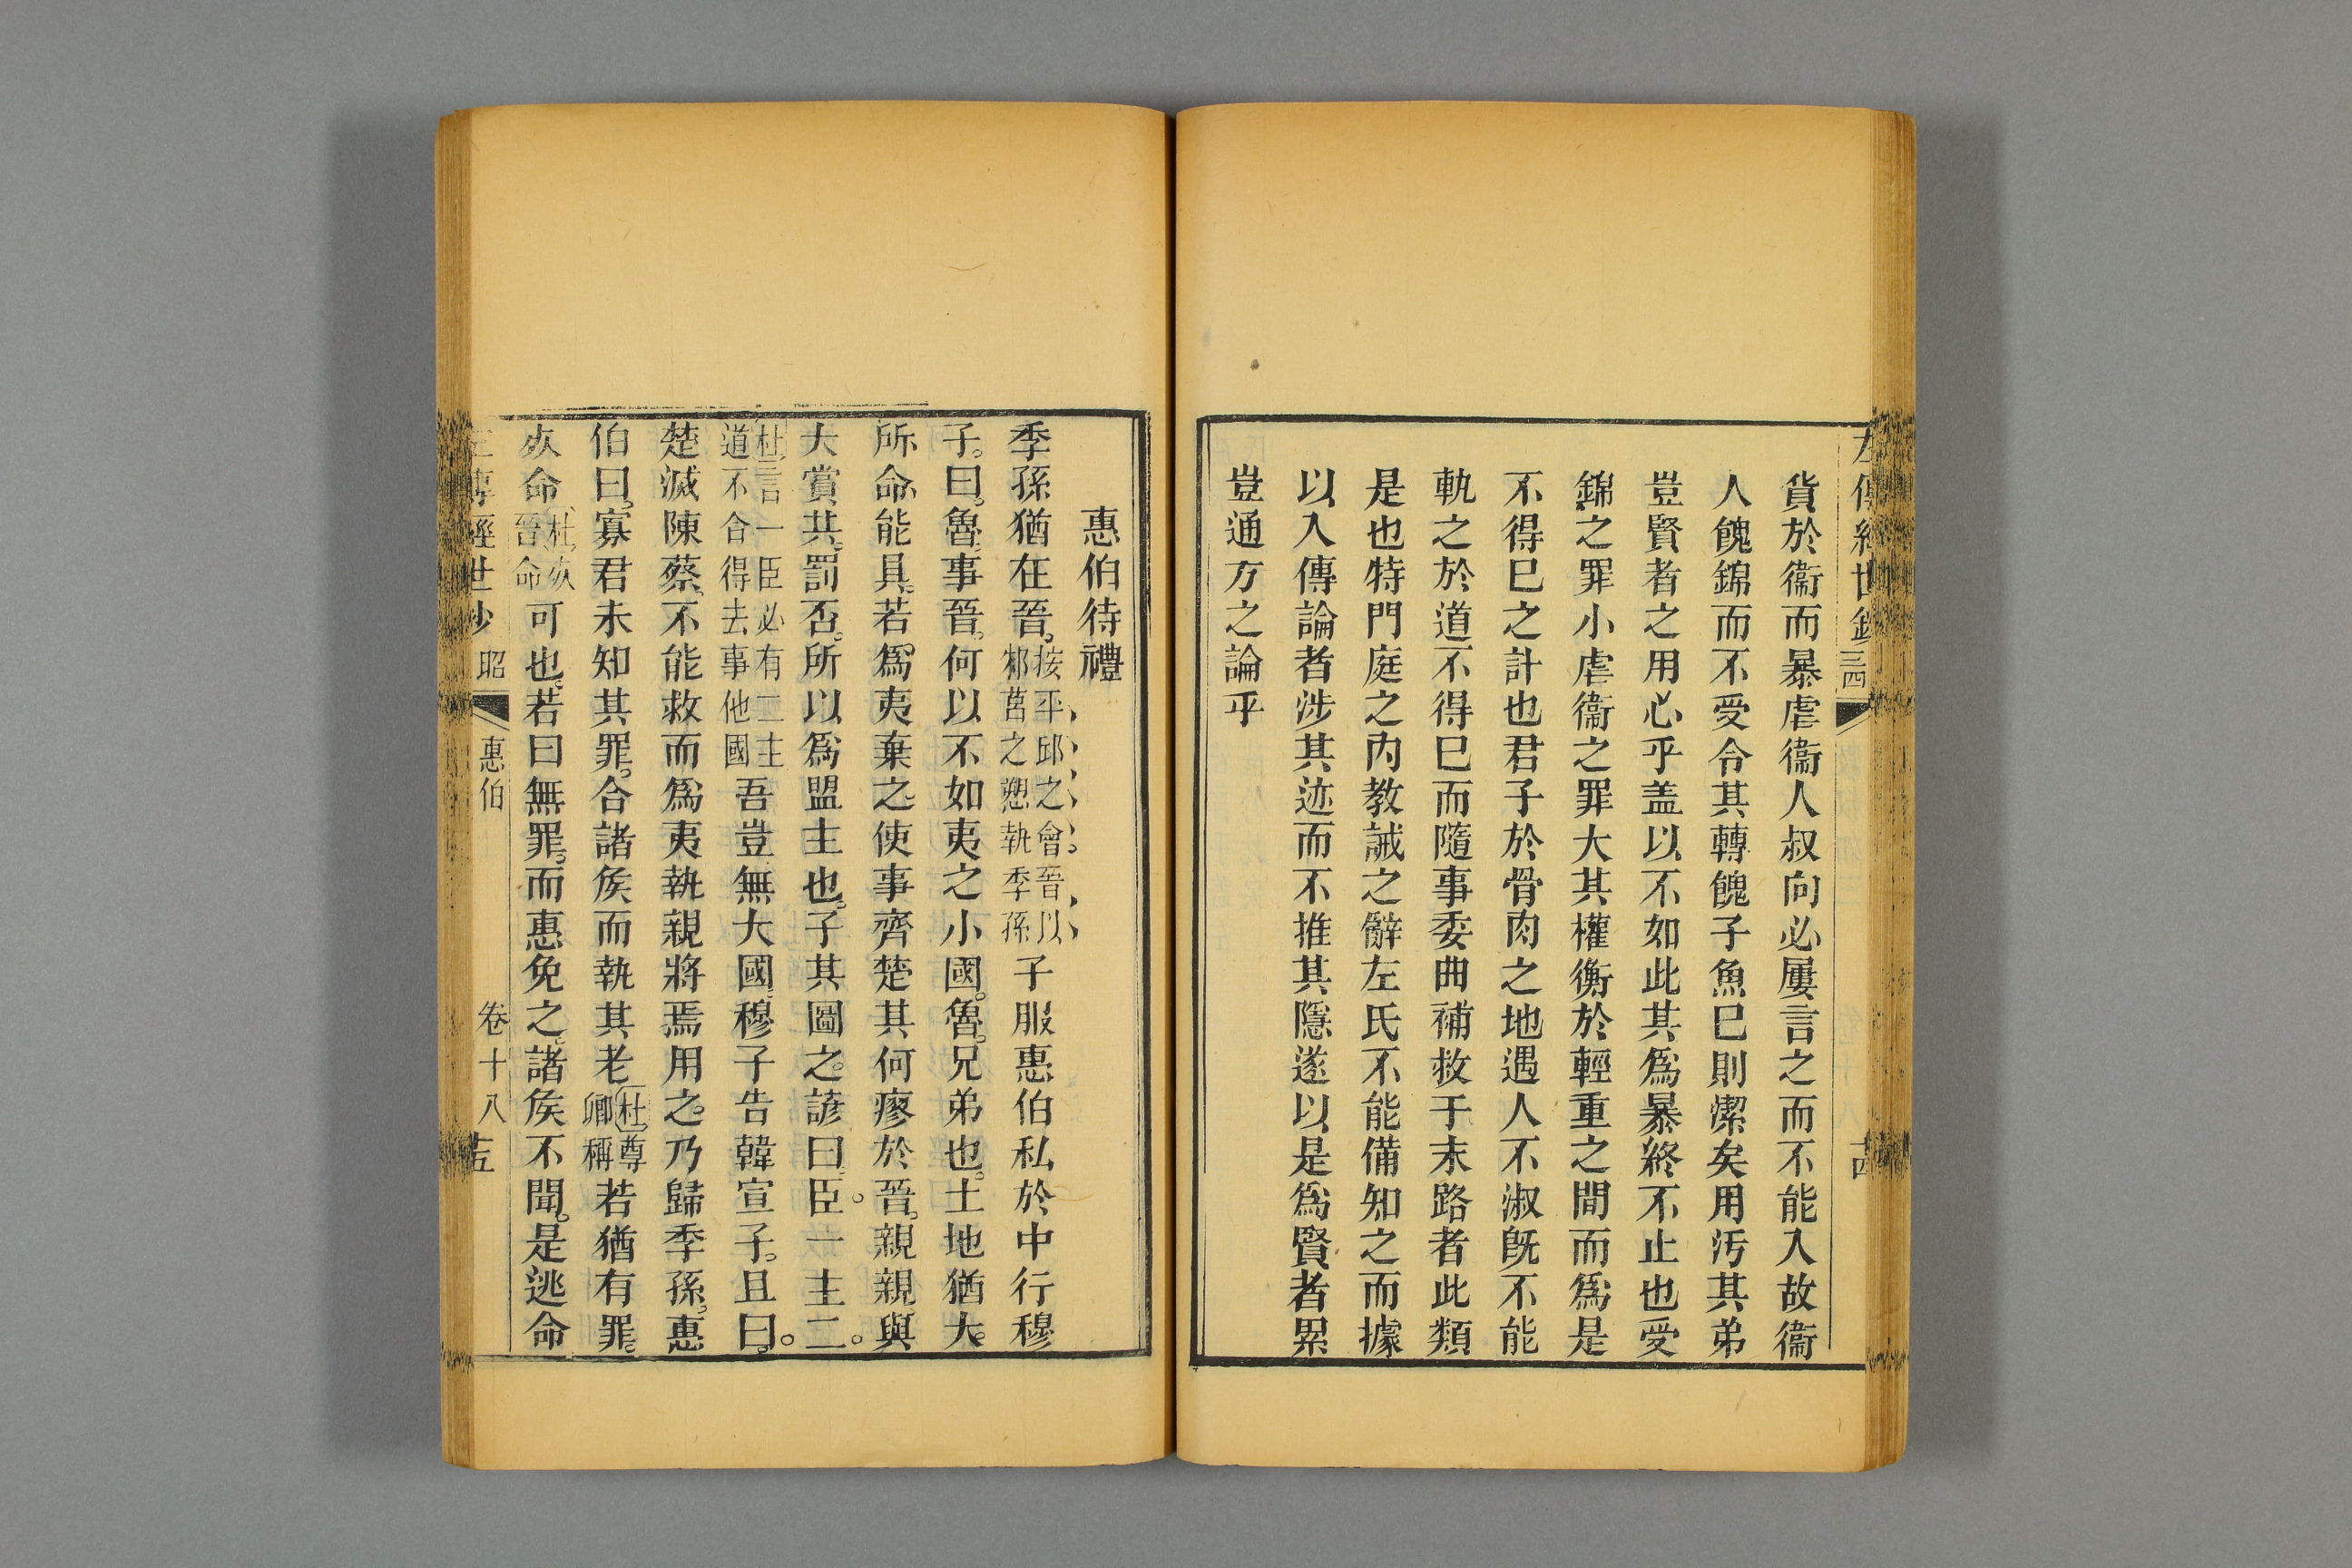 貨於衞而暴虐衞人叔向必屢言之而不能入故衞
人餽錦而不受令其轉餽子魚巳則潔矣用汚其弟
豈賢者之用心乎盖以不如此其爲暴終不止也受
錦之罪小虐衞之罪大其權衡於輕重之間而爲是
不得巳之計也君子於骨肉之地遇人不淑旣不能
軌之於道不得巳而隨事委曲補救于末路者此類
是也特門庭之内教誡之辭左氏不能備知之而據
以入傳論者涉其迹而不推其隱遂以是爲賢者累
豈通方之論乎
惠伯待禮
季孫猶在晉。按平邱之會晉以邾莒之愬執季孫子服惠伯私於中行穆
子。曰。魯事晉。何以不如夷之小國。魯。兄弟也。土地猶大。
所命能具。若爲夷棄之。使事齊楚其何瘳於晉。親親與
大賞共罰否。所以爲盟主也。子其圖之。諺曰。臣一主二。
杜言一臣必有二主道不合得去事他國吾豈無大國。穆子告韓宣子。且曰。
楚滅陳蔡。不能救而爲夷執親將焉用之。乃歸季孫。惠
伯曰。寡君未知其罪。合諸侯而執其老杜尊卿稱若猶有罪。
死命杜死晉命可也。若曰無罪。而惠免之。諸侯不聞。是逃命
昭 惠伯 卷十八 十五